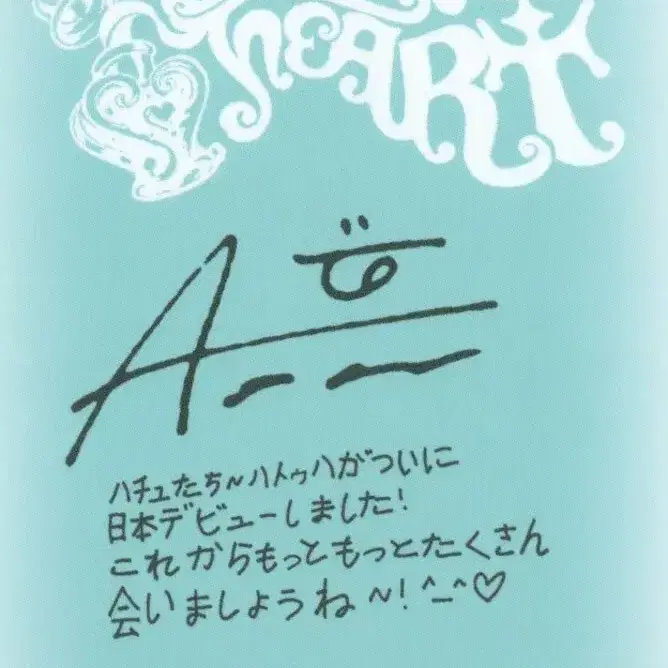 HEART
ハチュたち~ハトゥハがついに
日本デビューしました!
これからもっともっとたくさん
会いましょうね~! ^_^♡